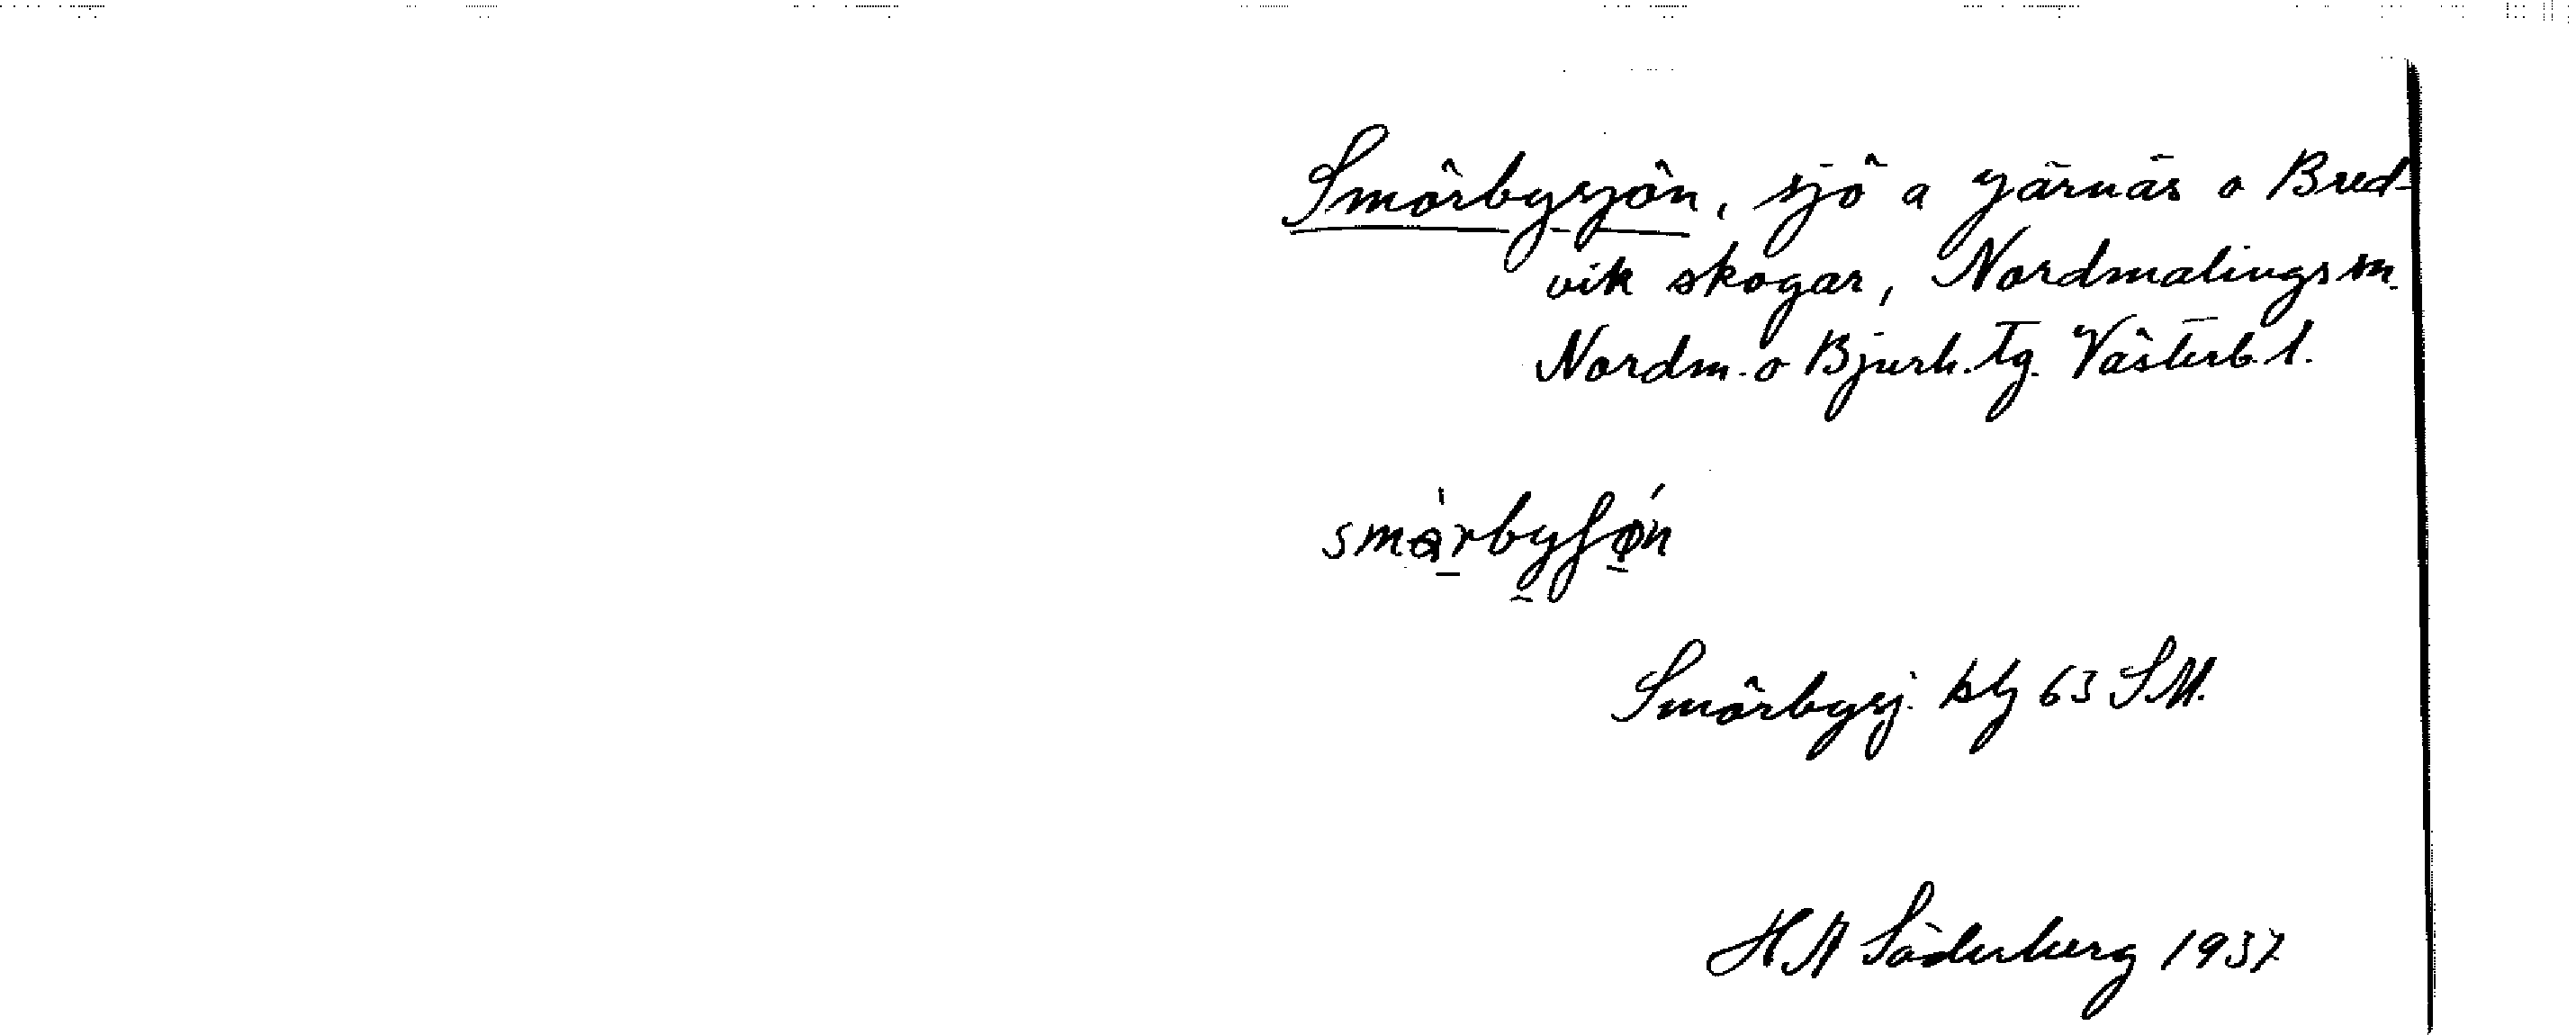 Smörbysjön, sjö a Järnäs o Bred-
vik skogar, Nordmalings sn.
Nordm. o Bjurh. Tg. Västerb. l.
Smörbysj. blg 63 SM.
H A Söderberg 1937